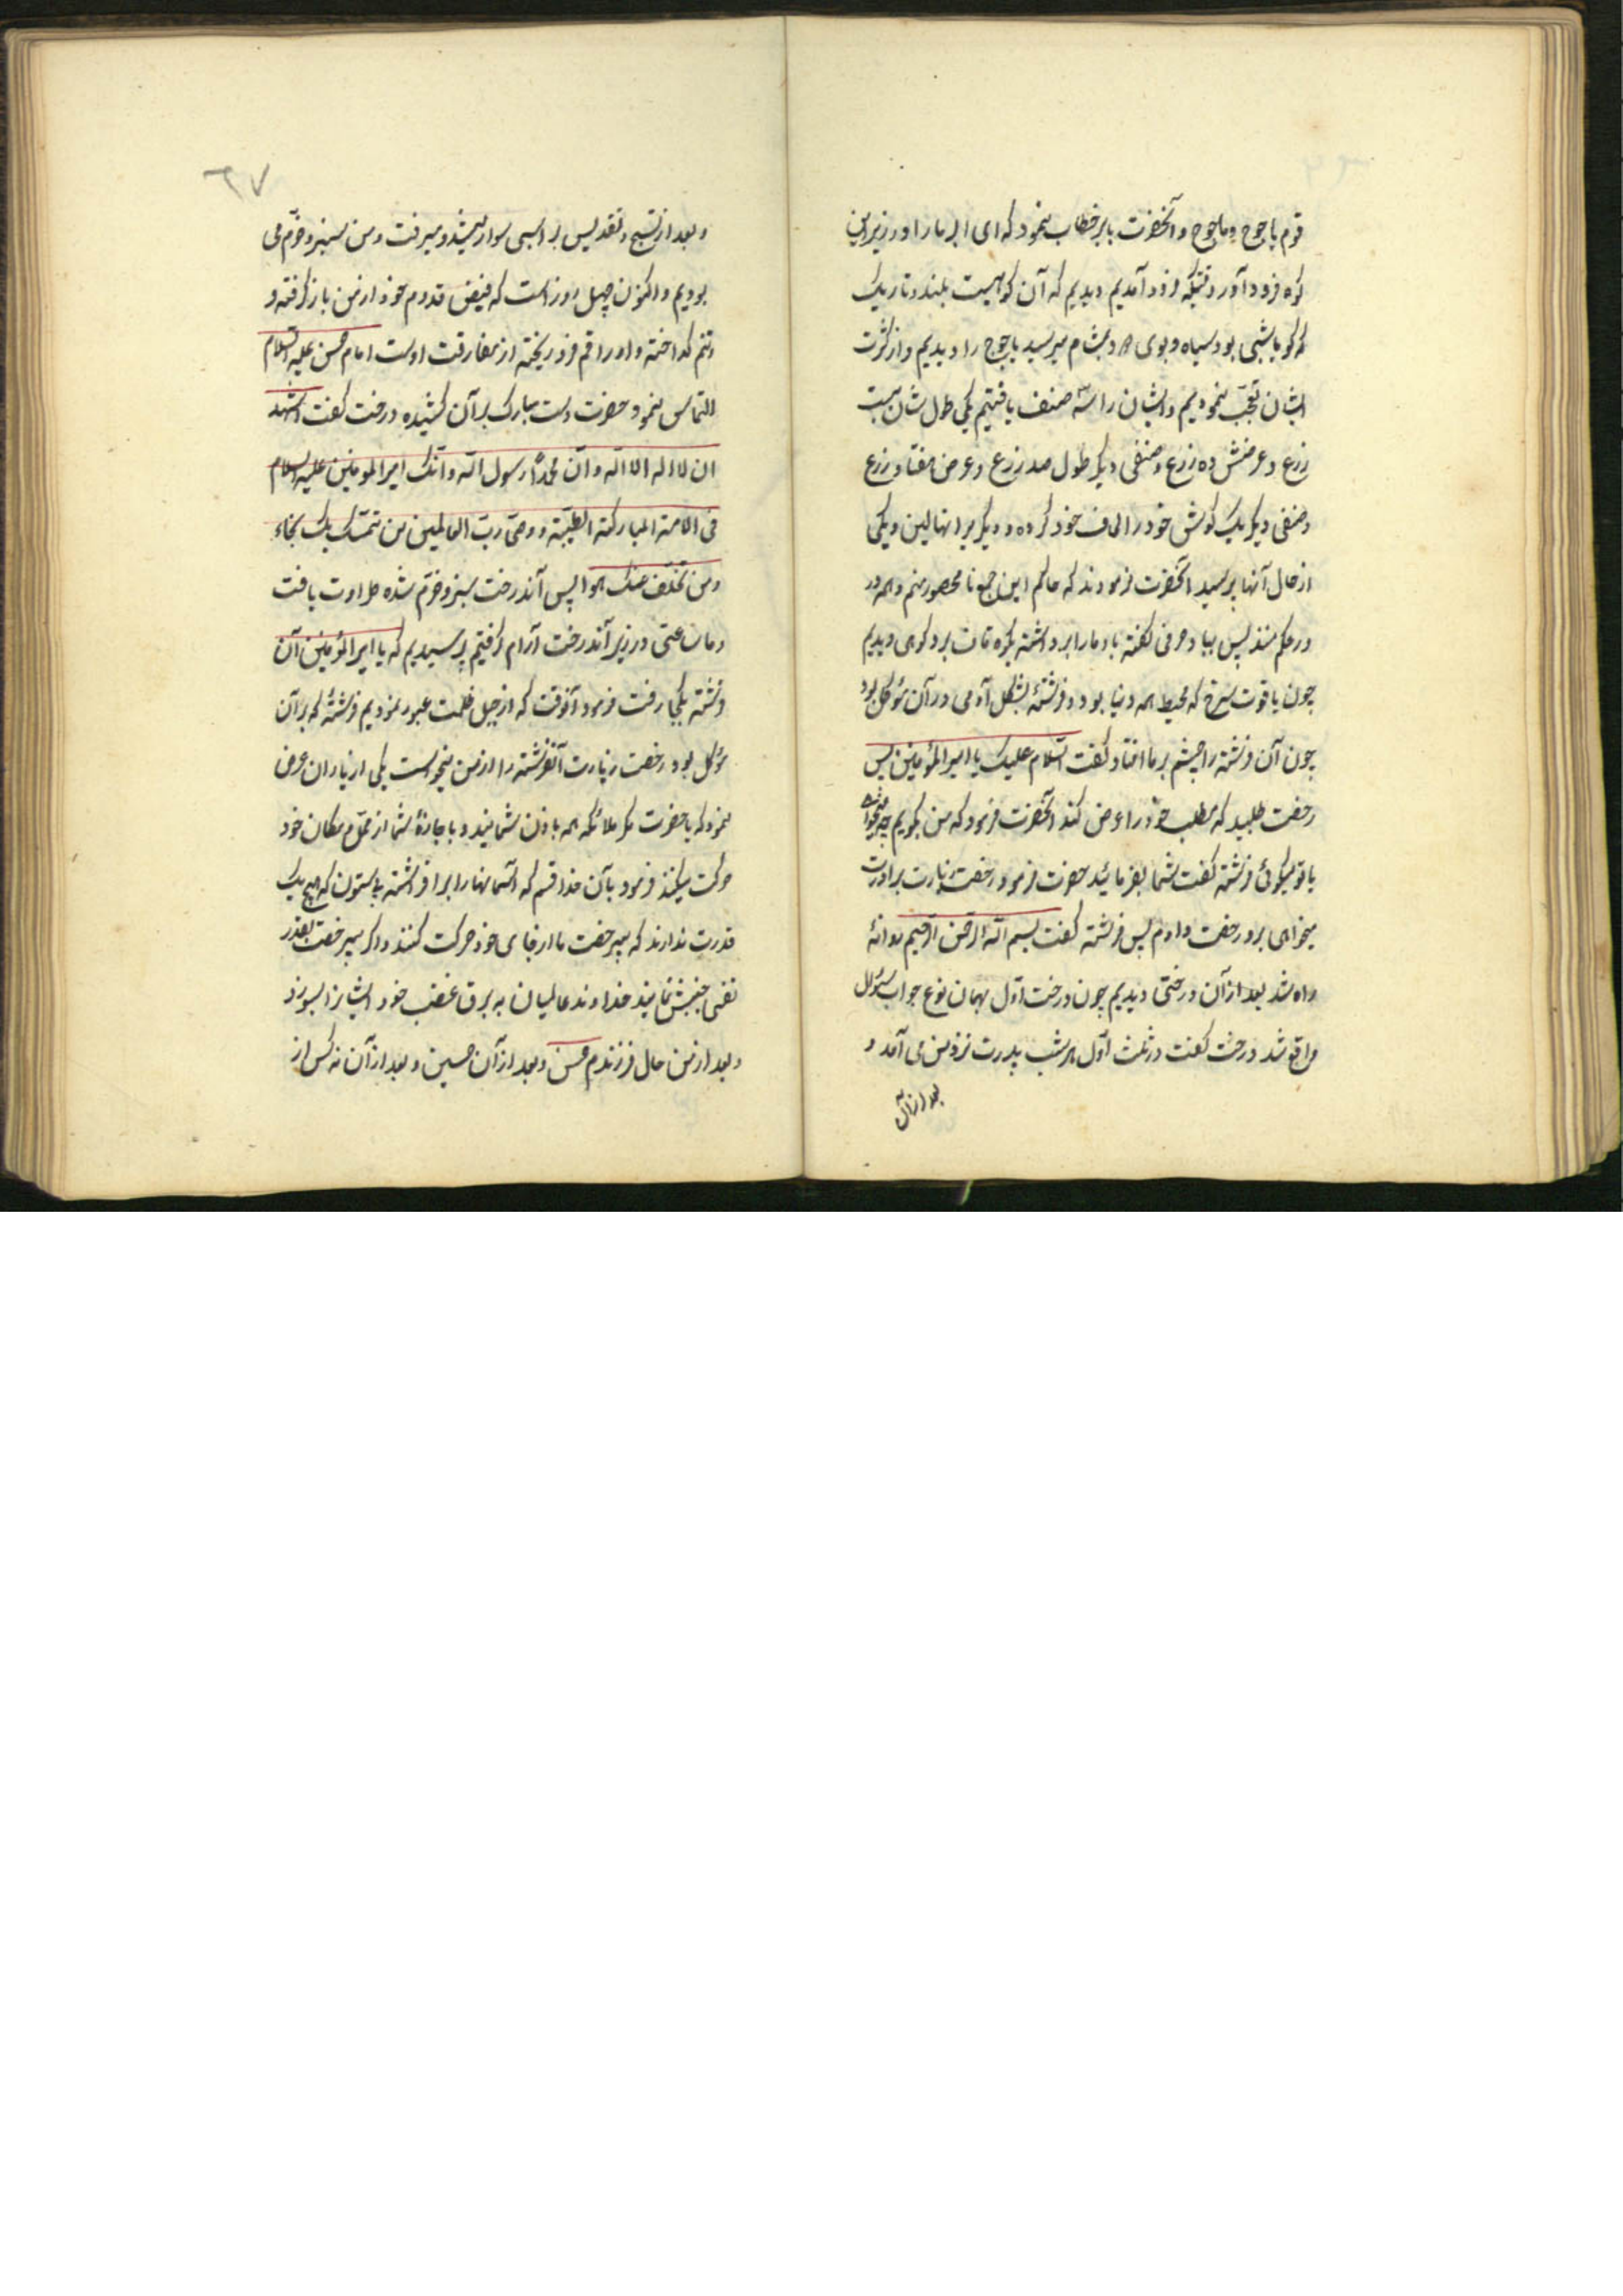 قوم یاجوج وماجوج وآنحضرت بابر خطاب نمود که ای ابر مارا در زیر این
کوه فرود آور وقتیکه فرود آمدیم دیدیم که آن کوهیست بلند وتاریک
که کویا شبی بود سیاه وبوی دود بمشام میرسید یاجوج را دیدیم واز کثرت
ایشان تعجب نمودیم وایشان را سه صنف یافتیم یکی طول شان بیست
زرع وعرضش ده زرع وصنفی دیکر طول صد زرع وعرض هفتاد زرع
وصنفی دیکر یک کوش خود را لحاف خود کرده ودیکر یرا نهالین ویکی
از حال آنها پرسید آنحضرت فرمودند که حاکم این جمع نا محصور منم وهمه در
در حکم منند پس بباد حرفی کفته باد مارا برداشته بکوه قاف برد کوهی دیدیم
چون یاقوت سرخ که محیط همه دنیا بود وفرشتهٔ بشکل آدمی در آن موکل بود
چون آن فرشته را چشم بر ما افتاد کفت السلام علیک یا امیر المؤمنین پس
رخصت طلبید که مطلب خود را عرض کند آنحضرت فرمود که من بکویم چه میخواهی
یا تو میکوئی فرشته کفت شما بفرمائید حضرت فرمود رخصت زیارت برادرت
میخواهی برو رخصت دادم پس فرشته کفت بسم الله الرحمن الرحیم روانهٔ
راه شد بعد از آن درختی دیدیم چون درخت اول بهمان نوع جواب سئوال
واقع شد درخت کفت در ثلث اول هر شب پدرت نزد من می آمد و
بعد از آن
۶۷
وبعد از تسبیح وتقدیس بر اسبی سوار میشد ومیرفت ومن سبز وخرم می
بودیم واکنون چهل روز است که فیض قدوم خود از من باز کرفته و
وتنم کداخته واوراقم فرو ریخته از مفارقت اوست امام حسن علیه السلام
التماس نمود حضرت دست مبارک بر آن کشیده درخت کفت اشهد
ان لا اله الا الله وان محمدًا رسول الله وانک امیر المومنین علیه السلام
فی الامة المبارکة الطیبة ووصی رب العالمین من تمسک بک نجاء
ومن تخلف عنک هوا پس آندرخت سبز وخرم شده طراوت یافت
وما ساعتی در زیر آندرخت آرام کرفتیم پرسیدیم که یا امیر المؤمنین آن
فرشته بکجا رفت فرمود آنوقت که از جبل ظلمت عبور نمودیم فرشتهٔ که بر آن
موکل بود رخصت زیارت آنفرشته را از من میخواست یکی از یاران عرض
نمود که یا حضرت مکر ملائکه همه باذن شمایند وبا اجازهٔ شما از محل ومکان خود
حرکت میکنند فرمود بآن خدا قسم که آسمانها را برافراشته بی ستون که هیچ یک
قدرت ندارند که بیرخصت ما از جای خود حرکت کنند واکر بیرخصت بقدر
نفسی جنبش نمایند خداوند عالمیان به برق غضب خود ایشانرا بسوزد
وبعد از من حال فرزندم حسن وبعد از آن حسین وبعد از آن نه کس از